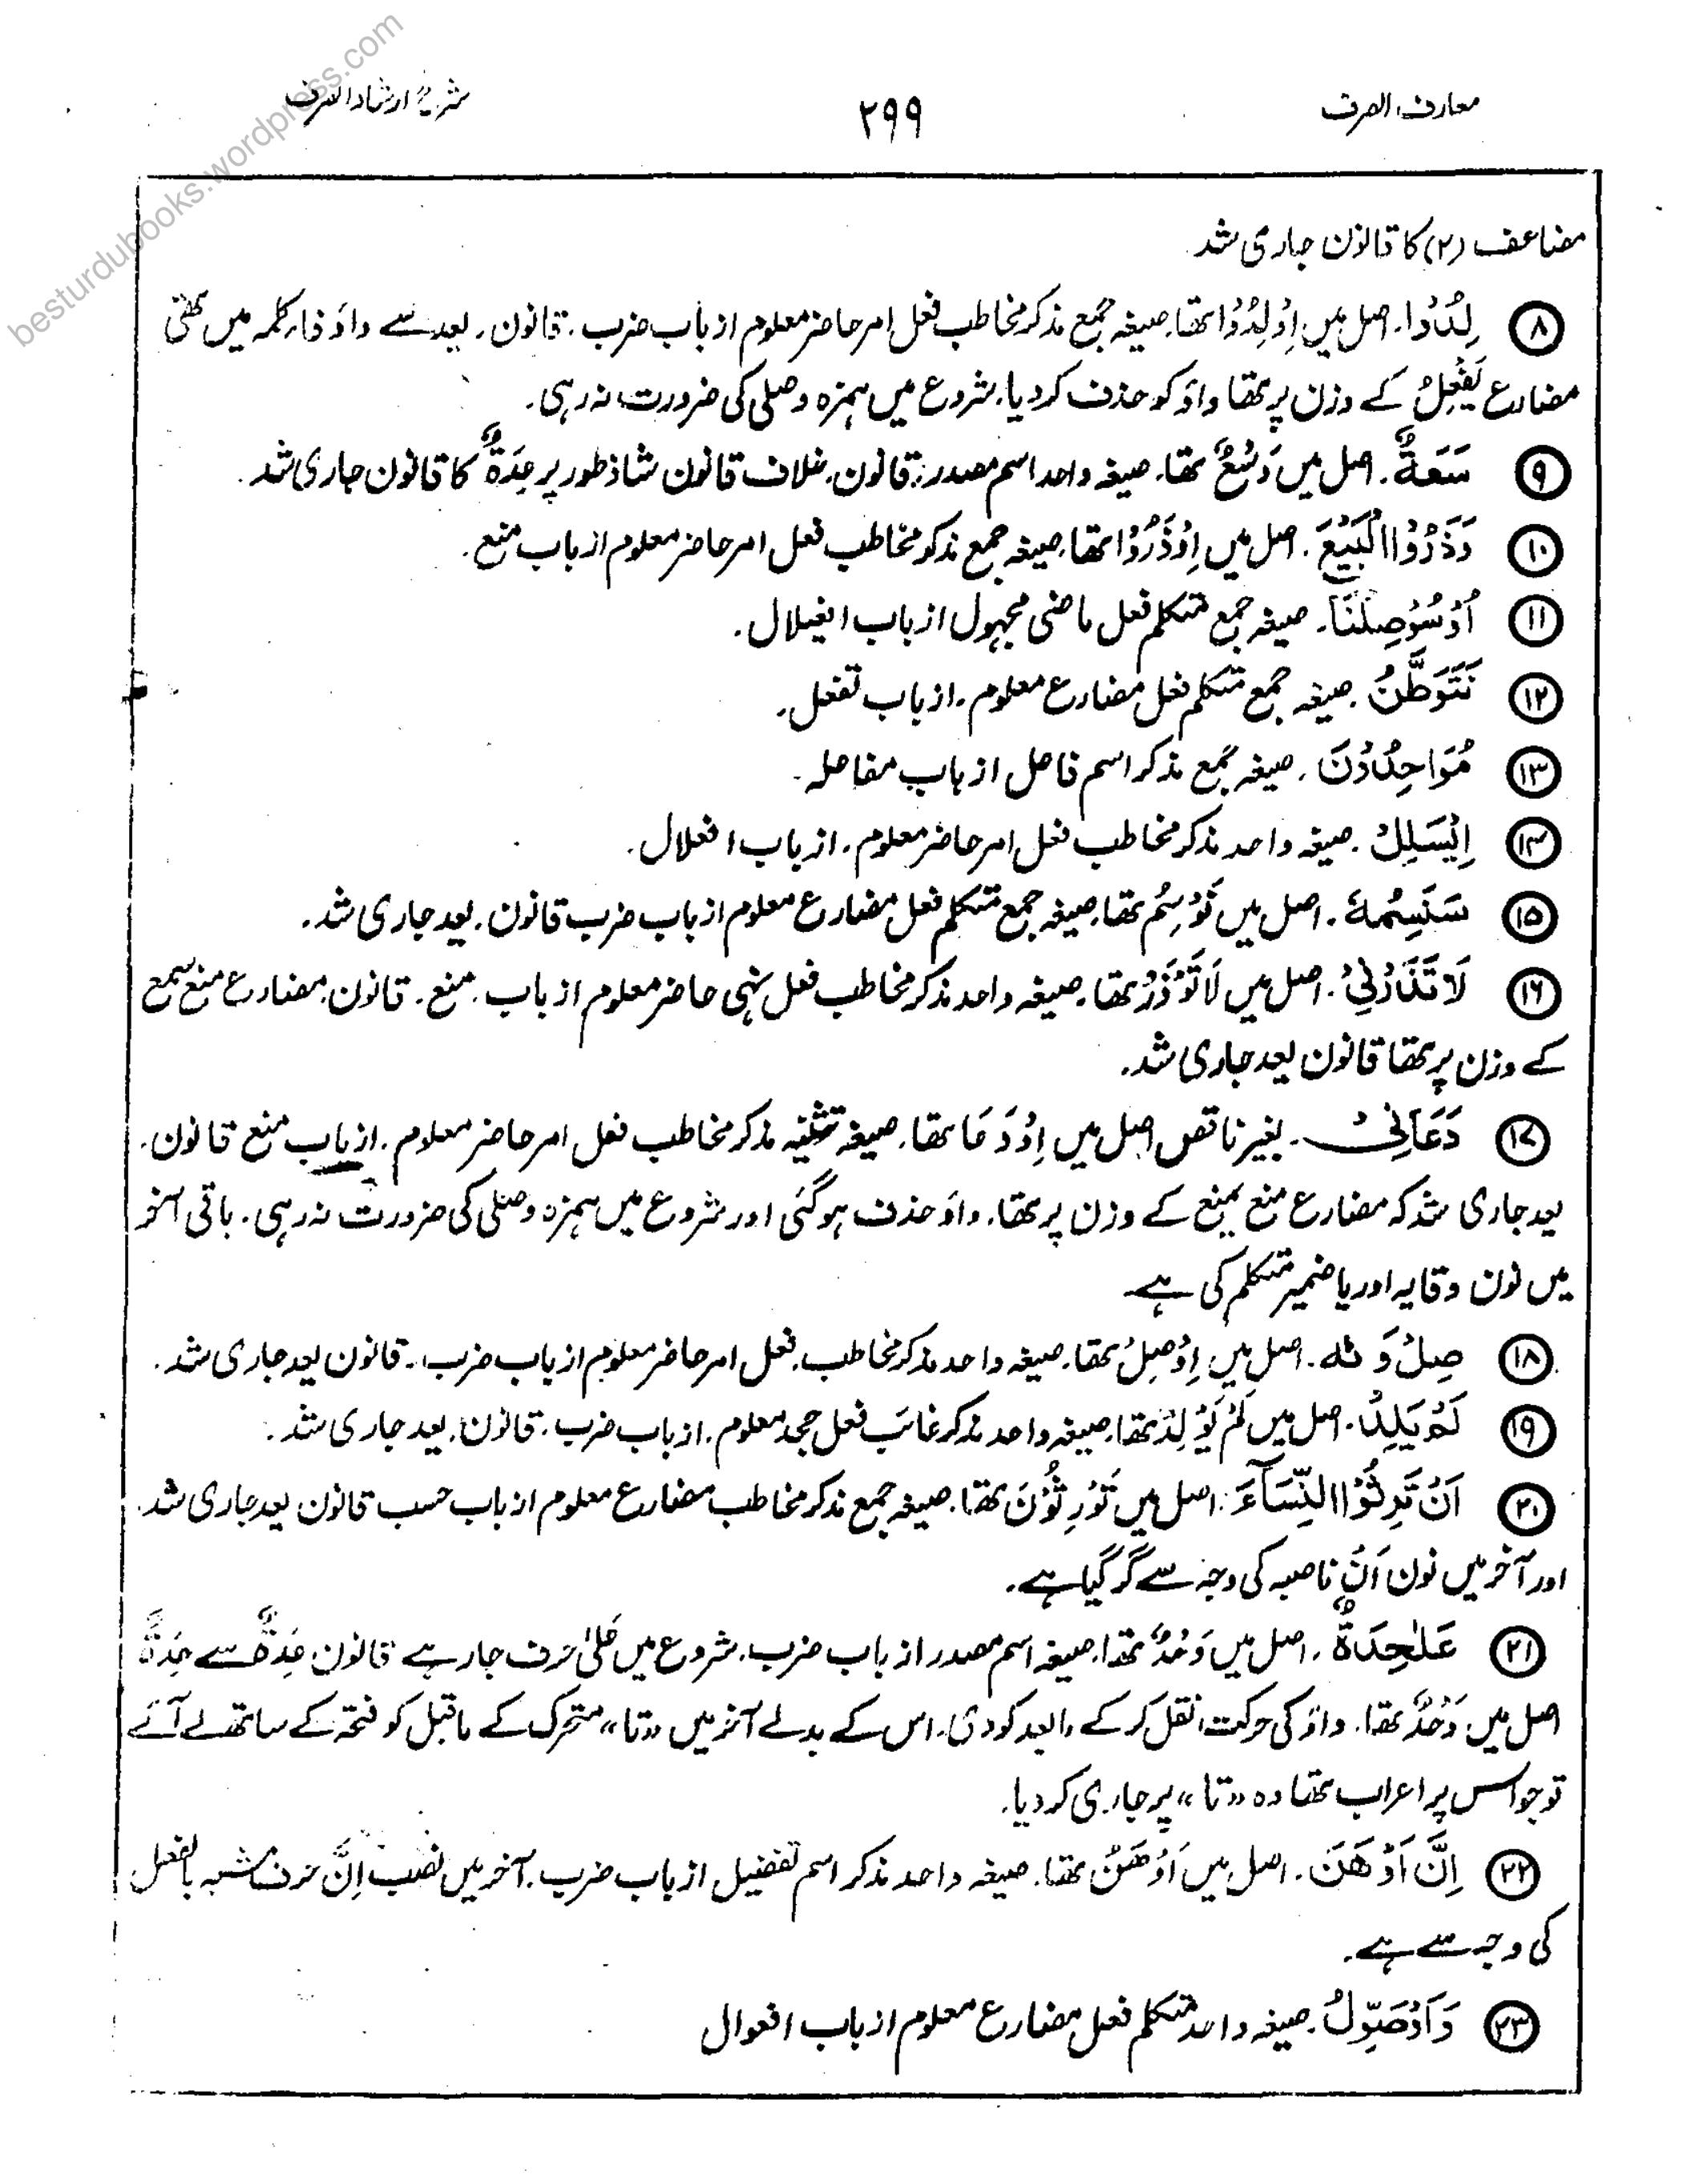 besturdubooks.wordpress.com
معارف الصرف
۲۹۹
شرح ارشاد الصرف
مضاعف (۲) کا قانون جاری شد
⑧ لِدُوا۔ اصل میں اِوْلِدُوْا تھا۔ صیغہ جمع مذکر مخاطب فعل امر حاضر معلوم از باب ضرب۔ قانون۔ یعد سے واؤ فا کلمہ میں تھی
مضارع یَفْعِلُ کے وزن پر تھا واؤ کو حذف کر دیا۔ شروع میں ہمزہ وصلی کی ضرورت نہ رہی۔
⑨ سَعَةٌ۔ اصل میں وَسْعٌ تھا۔ صیغہ واحد اسم مصدر۔ قانون۔ خلاف قانون شاذ طور پر عِدَةٌ کا قانون جاری شد۔
⑩ وَذَرُوْا الْبَیْعَ۔ اصل میں اِوْذَرُوْا تھا۔ صیغہ جمع مذکر مخاطب فعل امر حاضر معلوم از باب منع۔
⑪ اُوْسُوْصِلْنَا۔ صیغہ جمع متکلم فعل ماضی مجہول از باب افعیلال۔
⑫ نَتَوَطَّنُ۔ صیغہ جمع متکلم فعل مضارع معلوم۔ از باب تفعل۔
⑬ مُوَاحِدُوْنَ۔ صیغہ جمع مذکر اسم فاعل از باب مفاعلہ۔
⑭ اِیْسَلِلْ۔ صیغہ واحد مذکر مخاطب فعل امر حاضر معلوم۔ از باب افعلال۔
⑮ سَنَسِمُہٗ۔ اصل میں نَوْسِمُ تھا۔ صیغہ جمع متکلم فعل مضارع معلوم از باب ضرب قانون۔ یعد جاری شد۔
⑯ لَا تَذَرْنِیْ۔ اصل میں لَا تَوْذَرْ تھا۔ صیغہ واحد مذکر مخاطب فعل نہی حاضر معلوم از باب۔ منع۔ قانون۔ مضارع منع سمع
کے وزن پر تھا قانون یعد جاری شد۔
⑰ دَعَانِیْ۔ بغیر ناقص اصل میں اِوْدَعَا تھا۔ صیغہ تثنیہ مذکر مخاطب فعل امر حاضر معلوم۔ از باب منع قانون۔
یعد جاری شد کہ مضارع منع یمنع کے وزن پر تھا۔ واؤ حذف ہو گئی اور شروع میں ہمزہ وصلی کی ضرورت نہ رہی۔ باقی آخر
میں نون وقایہ اور یا ضمیر متکلم کی ہے
⑱ صِلْ وَ تہ۔ اصل میں اِوْصِلْ تھا۔ صیغہ واحد مذکر مخاطب۔ فعل امر حاضر معلوم از باب ضرب۔ قانون یعد جاری شد۔
⑲ لَمْ یَلِدْ۔ اصل میں لَمْ یَوْلِدْ تھا۔ صیغہ واحد مذکر غائب فعل جحد معلوم۔ از باب ضرب۔ قانون۔ یعد جاری شد۔
⑳ اَنْ تَرِثُوْا النِّسَآءَ۔ اصل میں تَوْرِثُوْنَ تھا۔ صیغہ جمع مذکر مخاطب مضارع معلوم از باب حسب قانون یعد جاری شد۔
اور آخر میں نون اَنْ ناصبہ کی وجہ سے گر گیا ہے۔
㉑ عَلٰحِدَةٌ۔ اصل میں وَحْدٌ تھا۔ صیغہ اسم مصدر از باب ضرب۔ شروع میں عَلٰی حرف جار ہے قانون عِدَةٌ سے حِدَةٌ
اصل میں وَحْدٌ تھا۔ واؤ کی حرکت نقل کر کے مابعد کو دی۔ اس کے بدلے آخر میں ”تا“ متحرک کے ماقبل کو فتحہ کے ساتھ لے آئے
تو جو اس پر اعراب تھا وہ ”تا“ پر جاری کر دیا۔
㉒ اِنَّ اَوْهَنَ۔ اصل میں اَوْهَنُ تھا۔ صیغہ واحد مذکر اسم تفضیل از باب ضرب۔ آخر میں نصب اِنَّ حرف مشبہ بالفعل
کی وجہ سے ہے۔
㉓ وَاَوْصَوِّلُ۔ صیغہ واحد متکلم فعل مضارع معلوم از باب افعوال